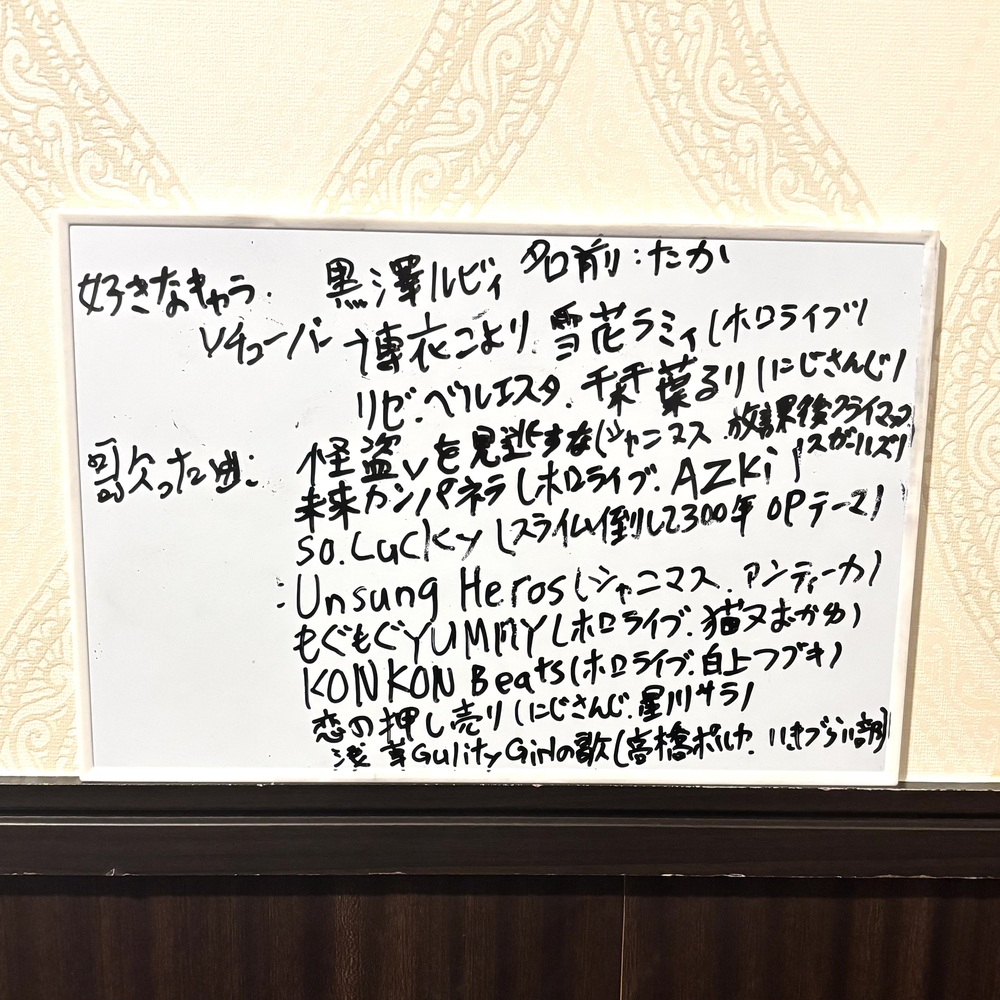 名前:たか
好きなキャラ. 黒澤ルビィ
Vチューバー 博衣こより. 雪花ラミィ(ホロライブ)
リゼ.ヘルエスタ. 栞葉るり(にじさんじ)
歌った曲: 怪盗Vを見逃すな(シャニマス 放課後クライマックスガールズ)
未来カンパネラ(ホロライブ. AZKi)
so.Lucky(スライム倒して300年 OPテーマ)
:Unsung Heros(シャニマス. アンティーカ)
もぐもぐYUMMY(ホロライブ. 猫又おかゆ)
KONKON Beats(ホロライブ. 白上フブキ)
恋の押し売り(にじさんじ. 星川サラ)
浅草Gulity Girlの歌(高橋ポルカ. いきづらい部)